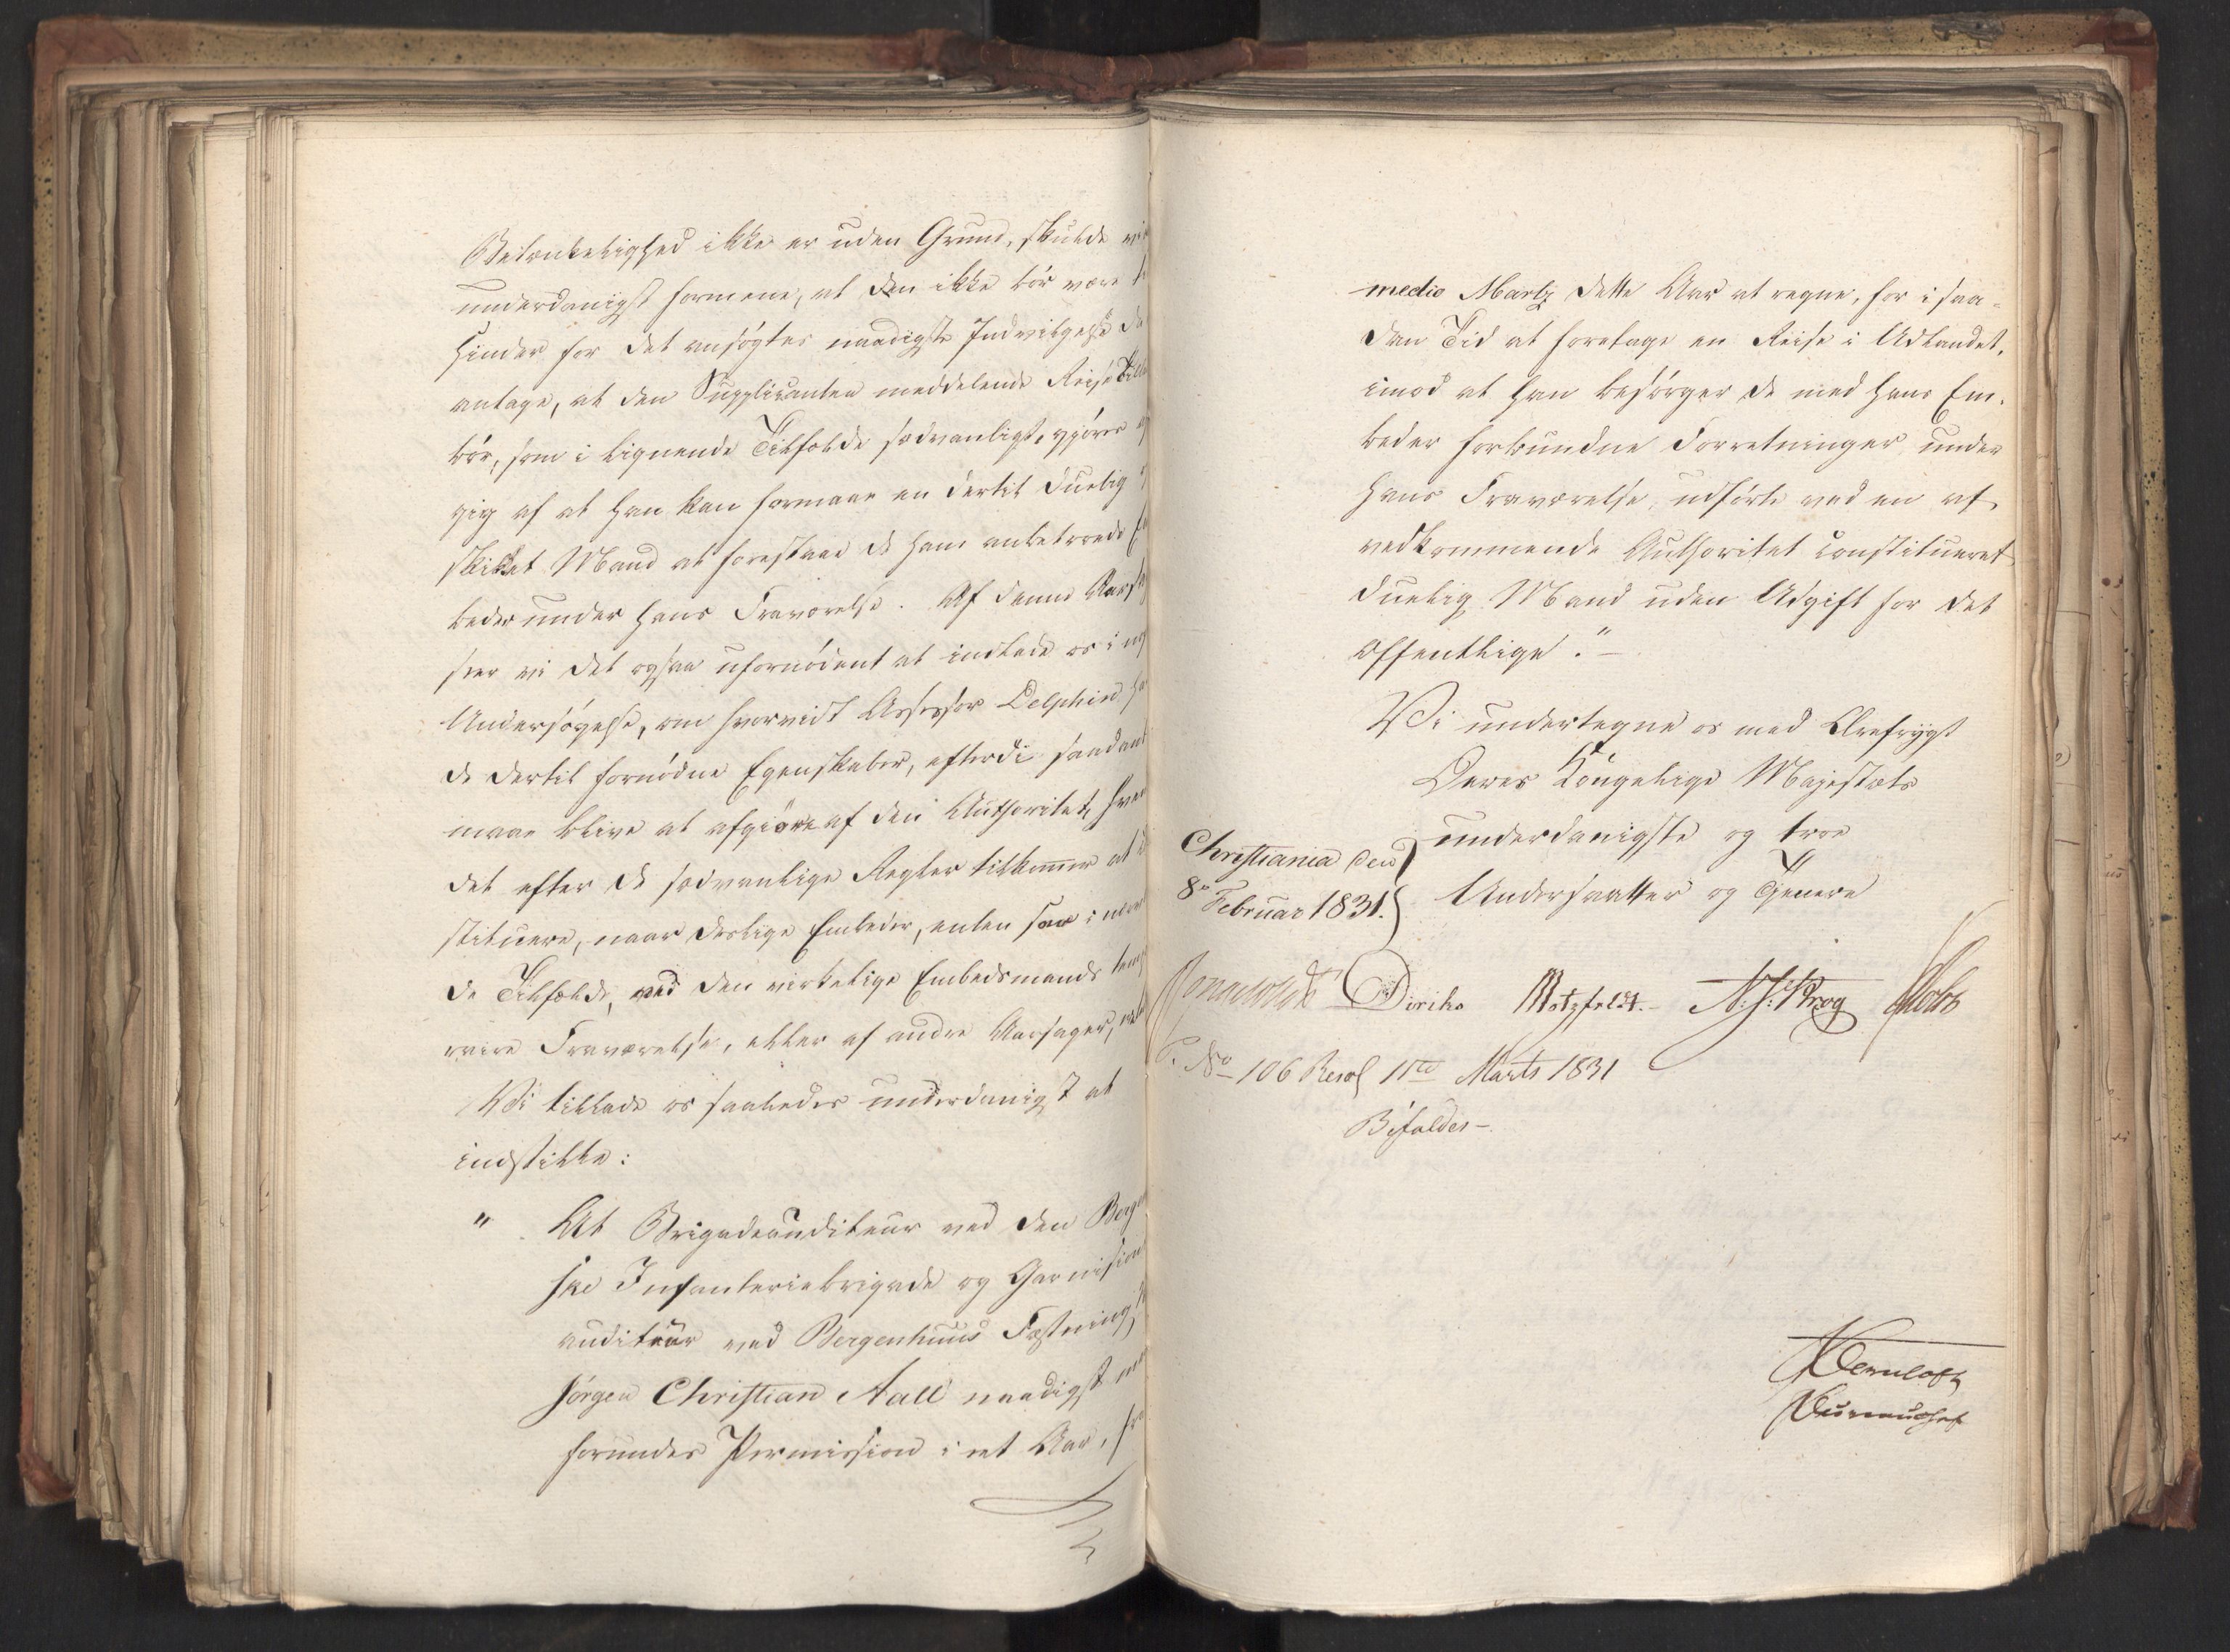 Betænkelighed ikke er uden Grund, skulde vi
underdanigst formene, at den ikke bør være t
Hinder for det ansøgtes naadigste Indvilgelse, da
antage, at den Supplicanten meddelende Reise Till
bør, som i lignende Tilfælde sædvanligt, gjøres
gig af at han kan formaae en dertil duelig
skikket Mand at forestaae de ham anbetroede E
beder under hans Fraværelse. Af denne Aarsag
seer vi det ogsaa ufornødent at indlade os i no
Undersøgelse, om hvorvidt Assessor Delphin ha
de dertil fornødne Egenskaber, efterdi saadant
maae blive at afgiøre af den Authoritet, hvem
det efter de sædvanlige Regler tilkommer at
stituere, naar deslige Embeder, enten som i nær
de Tilfælde, ved den virkelige Embedsmands lang
varige Fraværelse, eller af andre Aarsager,
Vi tillade os saaledes underdanigst at
indstille:
" At Brigadeauditeur ved den Berg
ske Infanteriebrigade og Garnisions
auditeur ved Bergenhuus Fæstning,
Jørgen Christian Aall naadigst
forundes Permission i eet Aar, fra
medio Martz dette Aar at regne, for i saa-
dan Tid at foretage en Reise i Udlandet,
imod at han besørger de med hans Em-
beder forbundne Forretninger under
hans Fraværelse, udførte ved en af
vedkommende Authoritet constitueret
duelig Mand uden Udgift for det
Offentlige."—
Vi undertegne os med Ærefrygt
Deres Kongelige Majestæts
underdanigste og troe
Christiania den
Undersaatter og Tjenere
8de Februar 1831.
Diriks Motzfeldt.- N. J. Krog Holst
P. No 106 Resol 11te Marts 1831
Bifaldes-